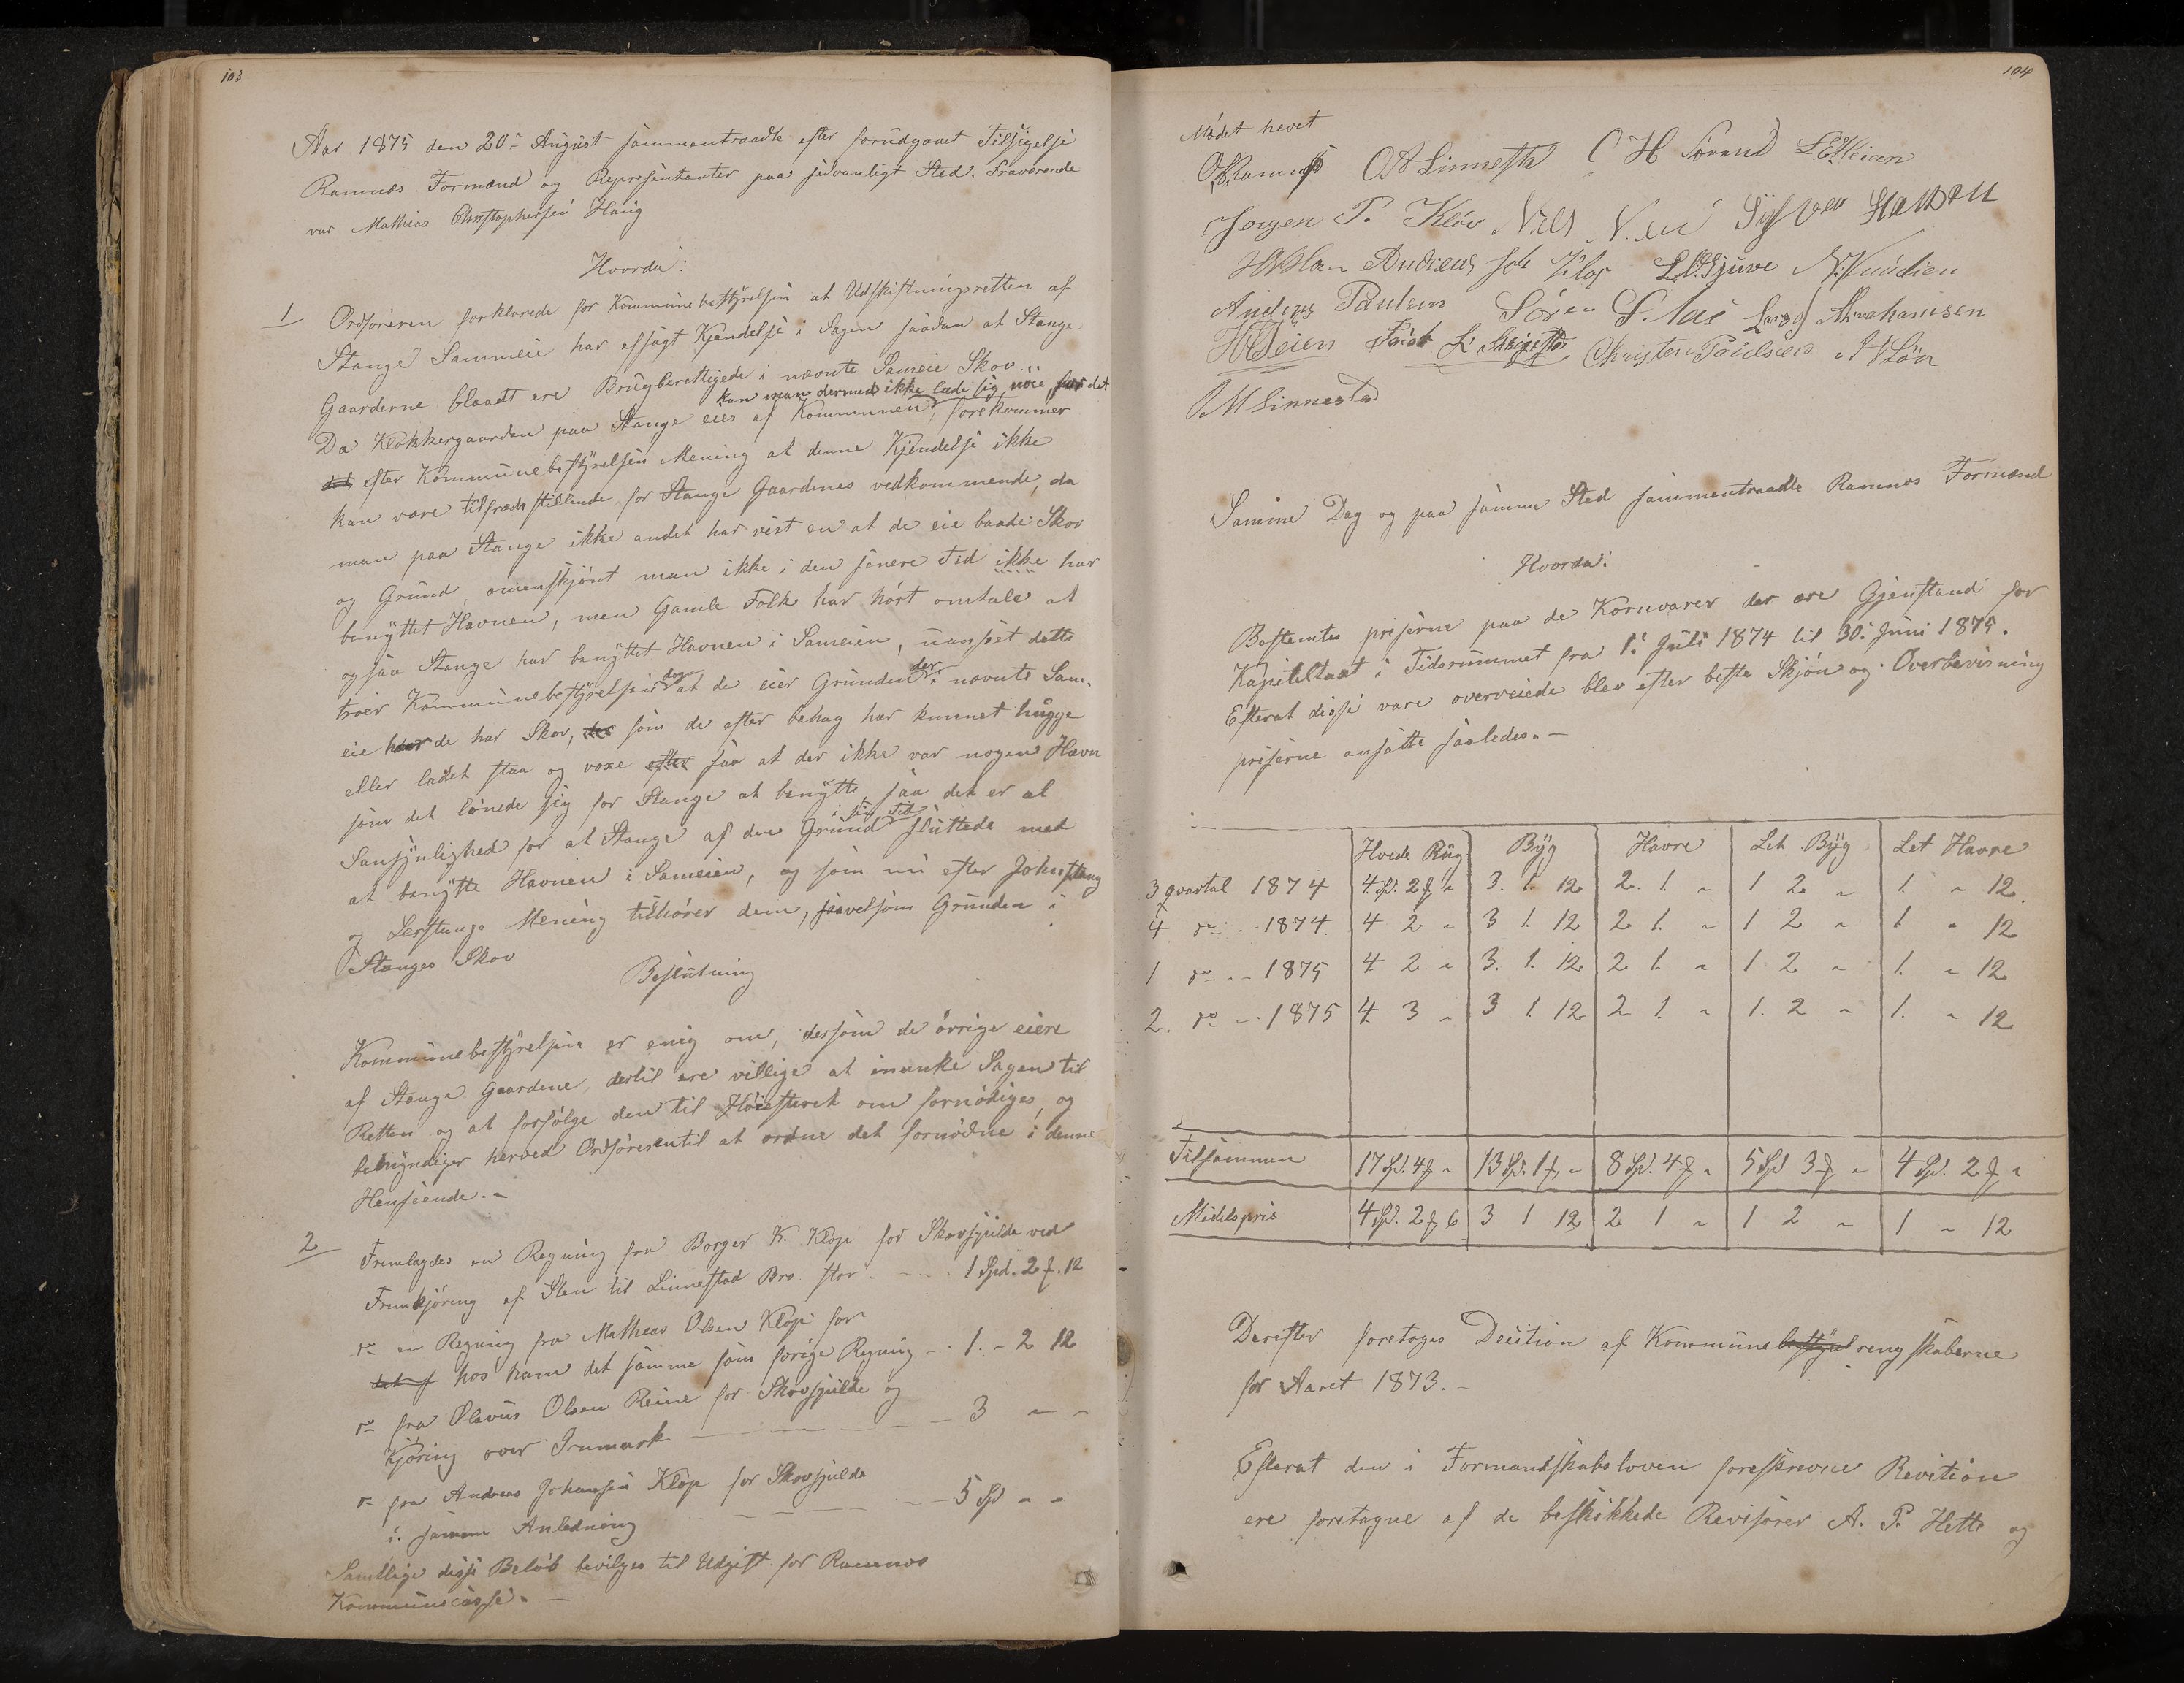 103
Aar 1875 den 20de August sammentraadte efter forudgaaet Tilsigelse
Ramnæs Formænd og Repræsentanter paa sedvanligt Sted. Fraværende
var Mathias Christophersen Haug
Hvorda:
1 Ordføreren forklarede for Kommunebestyrelsen at Udskiftningsretten af
Stange Sammeie har afsagt Kjendelse i Sagen saadan at Stange
Gaarderne blaadt ere Brugberettigede i nævnte Sameie Skov.
kan man dermed ikke lade sig nöie, for det
Da Klokkergaarden paa Stange eies af Kommunen, forekommer
det efter Kommunebestyrelsen Mening at denne Kjendelse ikke
kan være tilfredsstillende for Stange Gaardenes vedkommende, da
man paa Stange ikke andet har vist en at de eie baade Skov
og Grund, omenskjönt man ikke i den senere Tid ikke har
benyttet Havnen, men Gamle Folk har hört omtale at
ogsaa Stange har benyttet Havnen i Sameien, uanseet dette
troer Kommunebestyrelsen dog at de eier Grunden der i nævnte Sam-
eie hvor de har Skov, som de efter behag har kunnet hugge
eller ladet staa og voxe efter saa at der ikke var nogen Havn
som det lönede sig for Stange at benytte, saa det er al
Sansynlighed for at Stange af den Grund i sin Tid sluttede med
at benytte Havnen i Sameien, og som nu efter John Stang
og Lerstangs Mening tilhörer dem, saavelsom Grunden i
Stanges Skov
Beslutning
Kommunebestyrelsen er enig om, dersom de övrige eiere
af Stange Gaardene, dertil ere villige at inanke Sagen til
Retten og at forfölge den til Höiesteret om fornödiges, og
bemyndiger herved Ordföreren til at ordne det fornödne i denne
Henseende.-
2 Fremlagdes en Regning fra Borger K. Klop for Skovsjulde ved
Fremkjöring af Sten til Linnestad Bro stor - - - 1 Spd. 2 ƒ. 12
do en Regning fra Matheas Olsen Klöp for
det f hos ham det samme som forige Regning - - 1. - 2 12
do fra Olavus Olsen Reine for Skovsjulde og
Kjöring over Inmark - - - 3 " "
do fra Andreas Johansen Klöp for Skovsjulde
i samme Anledning - - - 5 Sp " "
Samtlige disse Belöb bevilges til Udgift for Ramnæs
Kommunecasse. -
104
Mödet hevet
O. Ramnæs O A Linnestad C H Sørand L E Heian
Jörgen P. Klöv Nils Sylfver Hansen
Andreas Joh Klop L. O. Gjuve N. Knudsen
Anders Paulsen Sören S. Aas Lars Abrahamsen
H Seien Christen Paulsen
M Linnestad
Samme Dag og paa samme Sted sammentraadte Ramnæs Formænd
Hvorda:
Bestemtes priserne paa de Kornvarer der ere Gjenstand for
Kapiteltaxt i Tidsrummet fra 1ste Juli 1874 til 30te Juni 1875.
Efterat disse vare overveiede blev efter beste Skjön og Overbevisning
priserne ansatte saaledes.-
Hvede Rüg Byg Havre Let Byg Let Havre
3 qvartal 1874 4 Sp. 2 ƒ " 3. 1. 12 2. 1. " 1 2 " 1. " 12.
4 do - - 1874. 4 2 " 3 1. 12 2 1. " 1 2 " 1 " 12
1 do - - 1875 4 2 " 3. 1. 12 2 1. " 1 2 " 1. " 12
2. do - - 1875 4. 3 " 3 1. 12 2 1. " 1. 2 " 1. " 12
Tilsammen 17 Sp. 4 ƒ " 13 Sp. 1 ƒ " 8 Sp. 4 ƒ " 5 Sp 3 ƒ " 4 Sp. 2 ƒ "
Middelspris 4 Sp. 2 ƒ 6 3 1 12 2 1 " 1 2 " 1 " 12
Derefter foretoges Decition af Kommune bestyrel rengskaberne
for Aaret 1873.-
Efterat den i Formandskabsloven foreskrevne Revition
ere foretagne af de beskikkede Revisorer A. P. Hette og